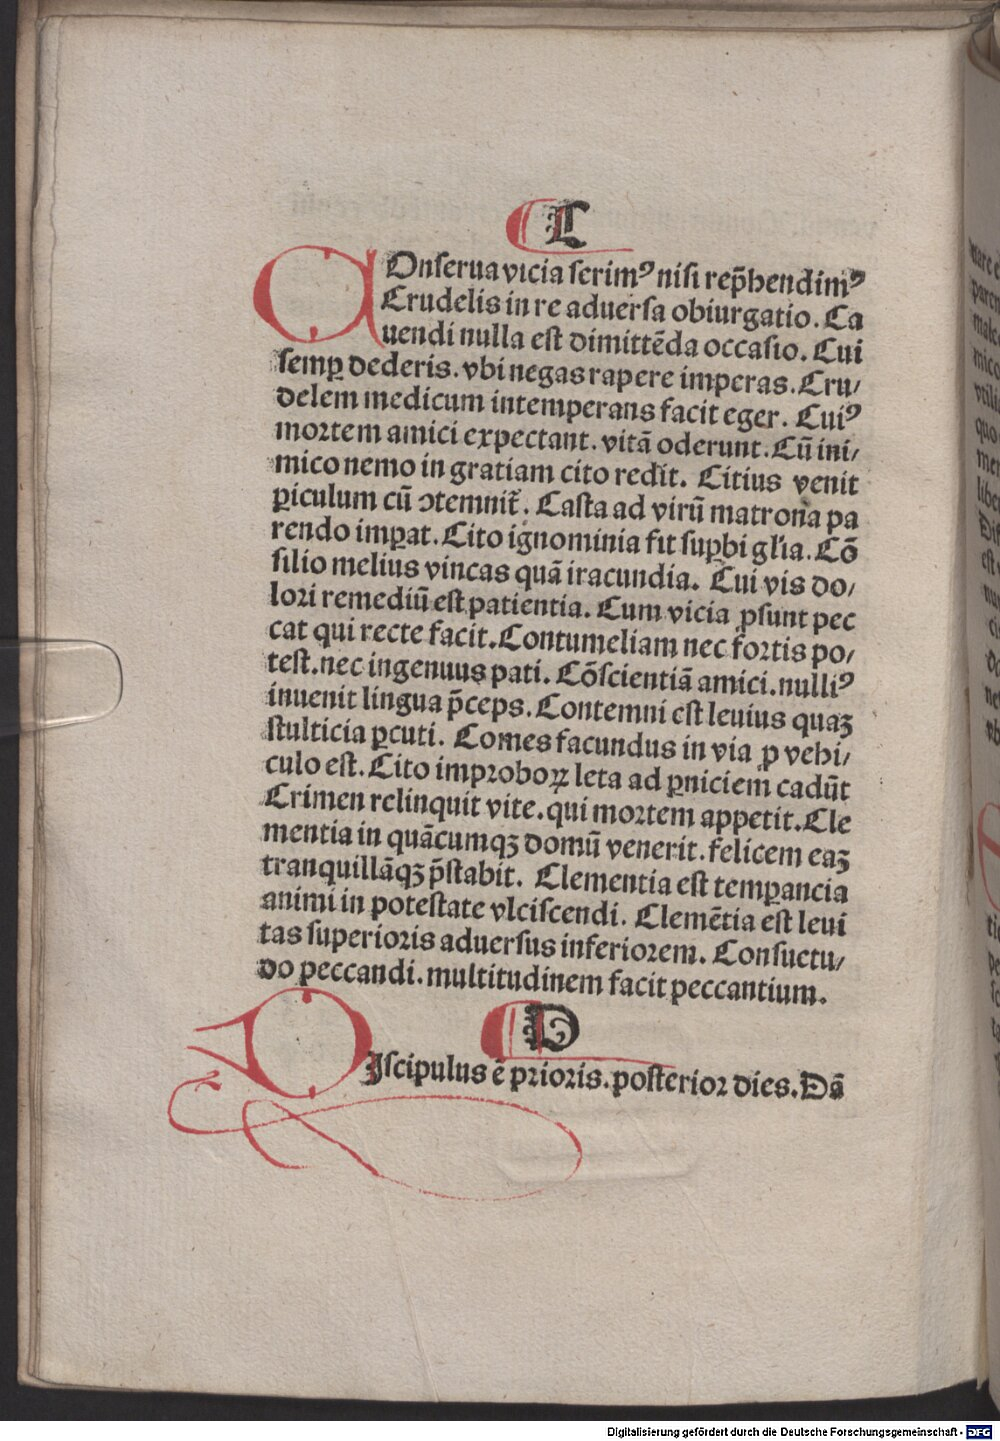 C
COnserua vicia ferimꝰ nisi rep̃hendimꝰ
Crudelis in re aduersa obiurgatio. Ca
uendi nulla est dimittẽda occasio. Cui
semꝑ dederis. vbi negas rapere imperas. Cru/
delem medicum intemperans facit eger. Cuiꝰ
mortem amici expectant. vitã oderunt. Cũ ini/
mico nemo in gratiam cito redit. Citius venit
ꝑiculum cũ ↄtemnit̃. Casta ad virũ matrona pa
rendo imꝑat. Cito ignominia fit suꝑbi gl'ia. Cõ
silio melius vincas quã iracundia. Cui vis do/
lori remediũ est patientia. Cum vicia ꝓsunt pec
cat qui recte facit. Contumeliam nec fortis po/
test. nec ingenuus pati. Cõscientiã amici. nulliꝰ
inuenit lingua p̃ceps. Contemni est leuius quaꝫ
stulticia ꝑcuti. Comes facundus in via ꝓ vehi/
culo est. Cito improboꝝ leta ad ꝑniciem cadũt
Crimen relinquit vite. qui mortem appetit. Cle
mentia in quãcumqꝫ domũ venerit. felicem eaꝫ
tranquillãqꝫ p̃stabit. Clementia est temꝑancia
animi in potestate vlciscendi. Clemẽtia est leui
tas superioris aduersus inferiorem. Consuetu/
do peccandi. multitudinem facit peccantium.
D
DIscipulus ẽ prioris. posterior dies. Dã
Digitalisierung gefördert durch die Deutsche Forschungsgemeinschaft - DFG